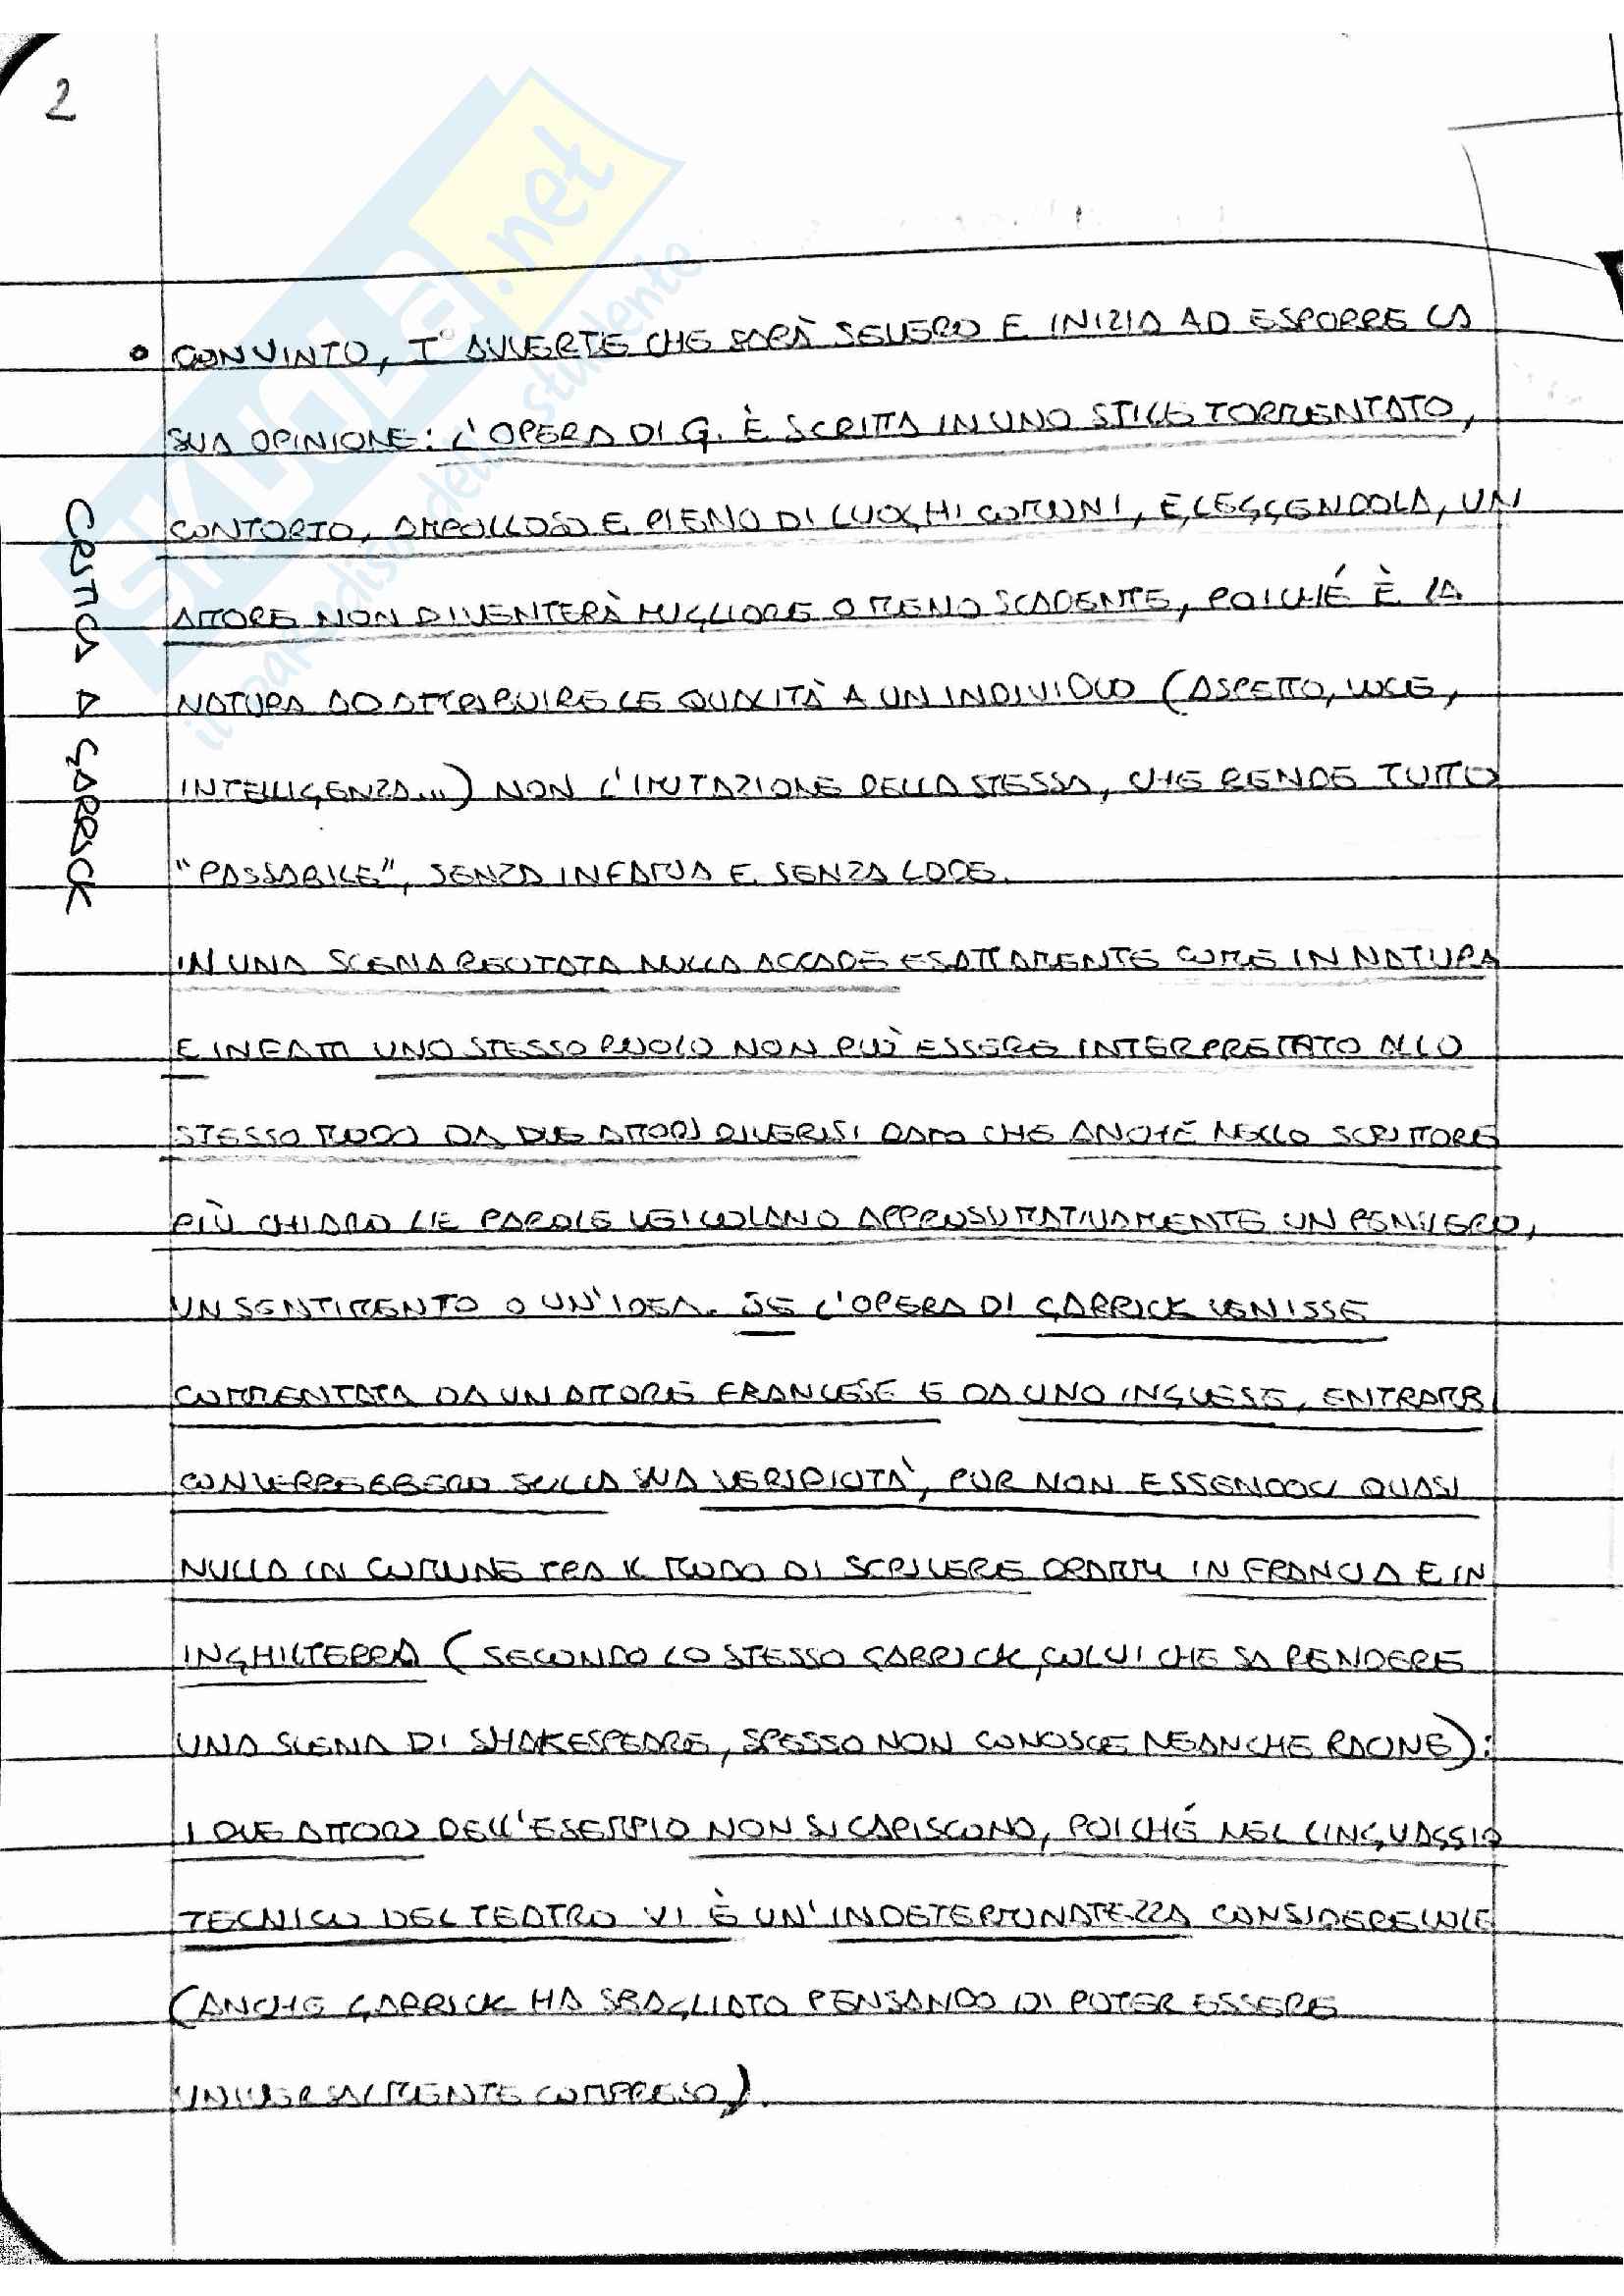 2
SKUOLA.net
il paradiso dello studente
CRITICA A GARRICK
• CONVINTO, I° AVVERTE CHE SARÀ SEVERO E INIZIA AD ESPORRE LA
SUA OPINIONE: L'OPERA DI G. È SCRITTA IN UNO STILE TORMENTATO,
CONTORTO, AMPOLLOSO E PIENO DI LUOGHI COMUNI, E, LEGGENDOLA, UN
ATTORE NON DIVENTERÀ MIGLIORE O MENO SCADENTE, POICHÉ È LA
NATURA AD ATTRIBUIRE LE QUALITÀ A UN INDIVIDUO (ASPETTO, VOCE,
INTELLIGENZA...) NON L'IMITAZIONE DELLA STESSA, CHE RENDE TUTTO
"PASSABILE", SENZA INFAMIA E SENZA LODE.
IN UNA SCENA RECITATA NULLA ACCADE ESATTAMENTE COME IN NATURA
E INFATTI UNO STESSO RUOLO NON PUÒ ESSERE INTERPRETATO ALLO
STESSO MODO DA DUE ATTORI DIVERSI DATO CHE ANCHE NELLO SCRITTORE
PIÙ CHIARO LE PAROLE VEICOLANO APPROSSIMATIVAMENTE UN PENSIERO,
UN SENTIMENTO O UN'IDEA. SE L'OPERA DI GARRICK VENISSE
COMMENTATA DA UN ATTORE FRANCESE E DA UNO INGLESE, ENTRAMBI
CONVERREBBERO SULLA SUA VERIDICITÀ, PUR NON ESSENDOCI QUASI
NULLA IN COMUNE TRA IL MODO DI SCRIVERE DRAMMI IN FRANCIA E IN
INGHILTERRA (SECONDO LO STESSO GARRICK, COLUI CHE SA RENDERE
UNA SCENA DI SHAKESPEARE, SPESSO NON CONOSCE NEANCHE RACINE):
I DUE ATTORI DELL'ESEMPIO NON SI CAPISCONO, POICHÉ NEL LINGUAGGIO
TECNICO DEL TEATRO VI È UN'INDETERMINATEZZA CONSIDEREVOLE
(ANCHE GARRICK HA SBAGLIATO PENSANDO DI POTER ESSERE
UNIVERSALMENTE COMPRESO).